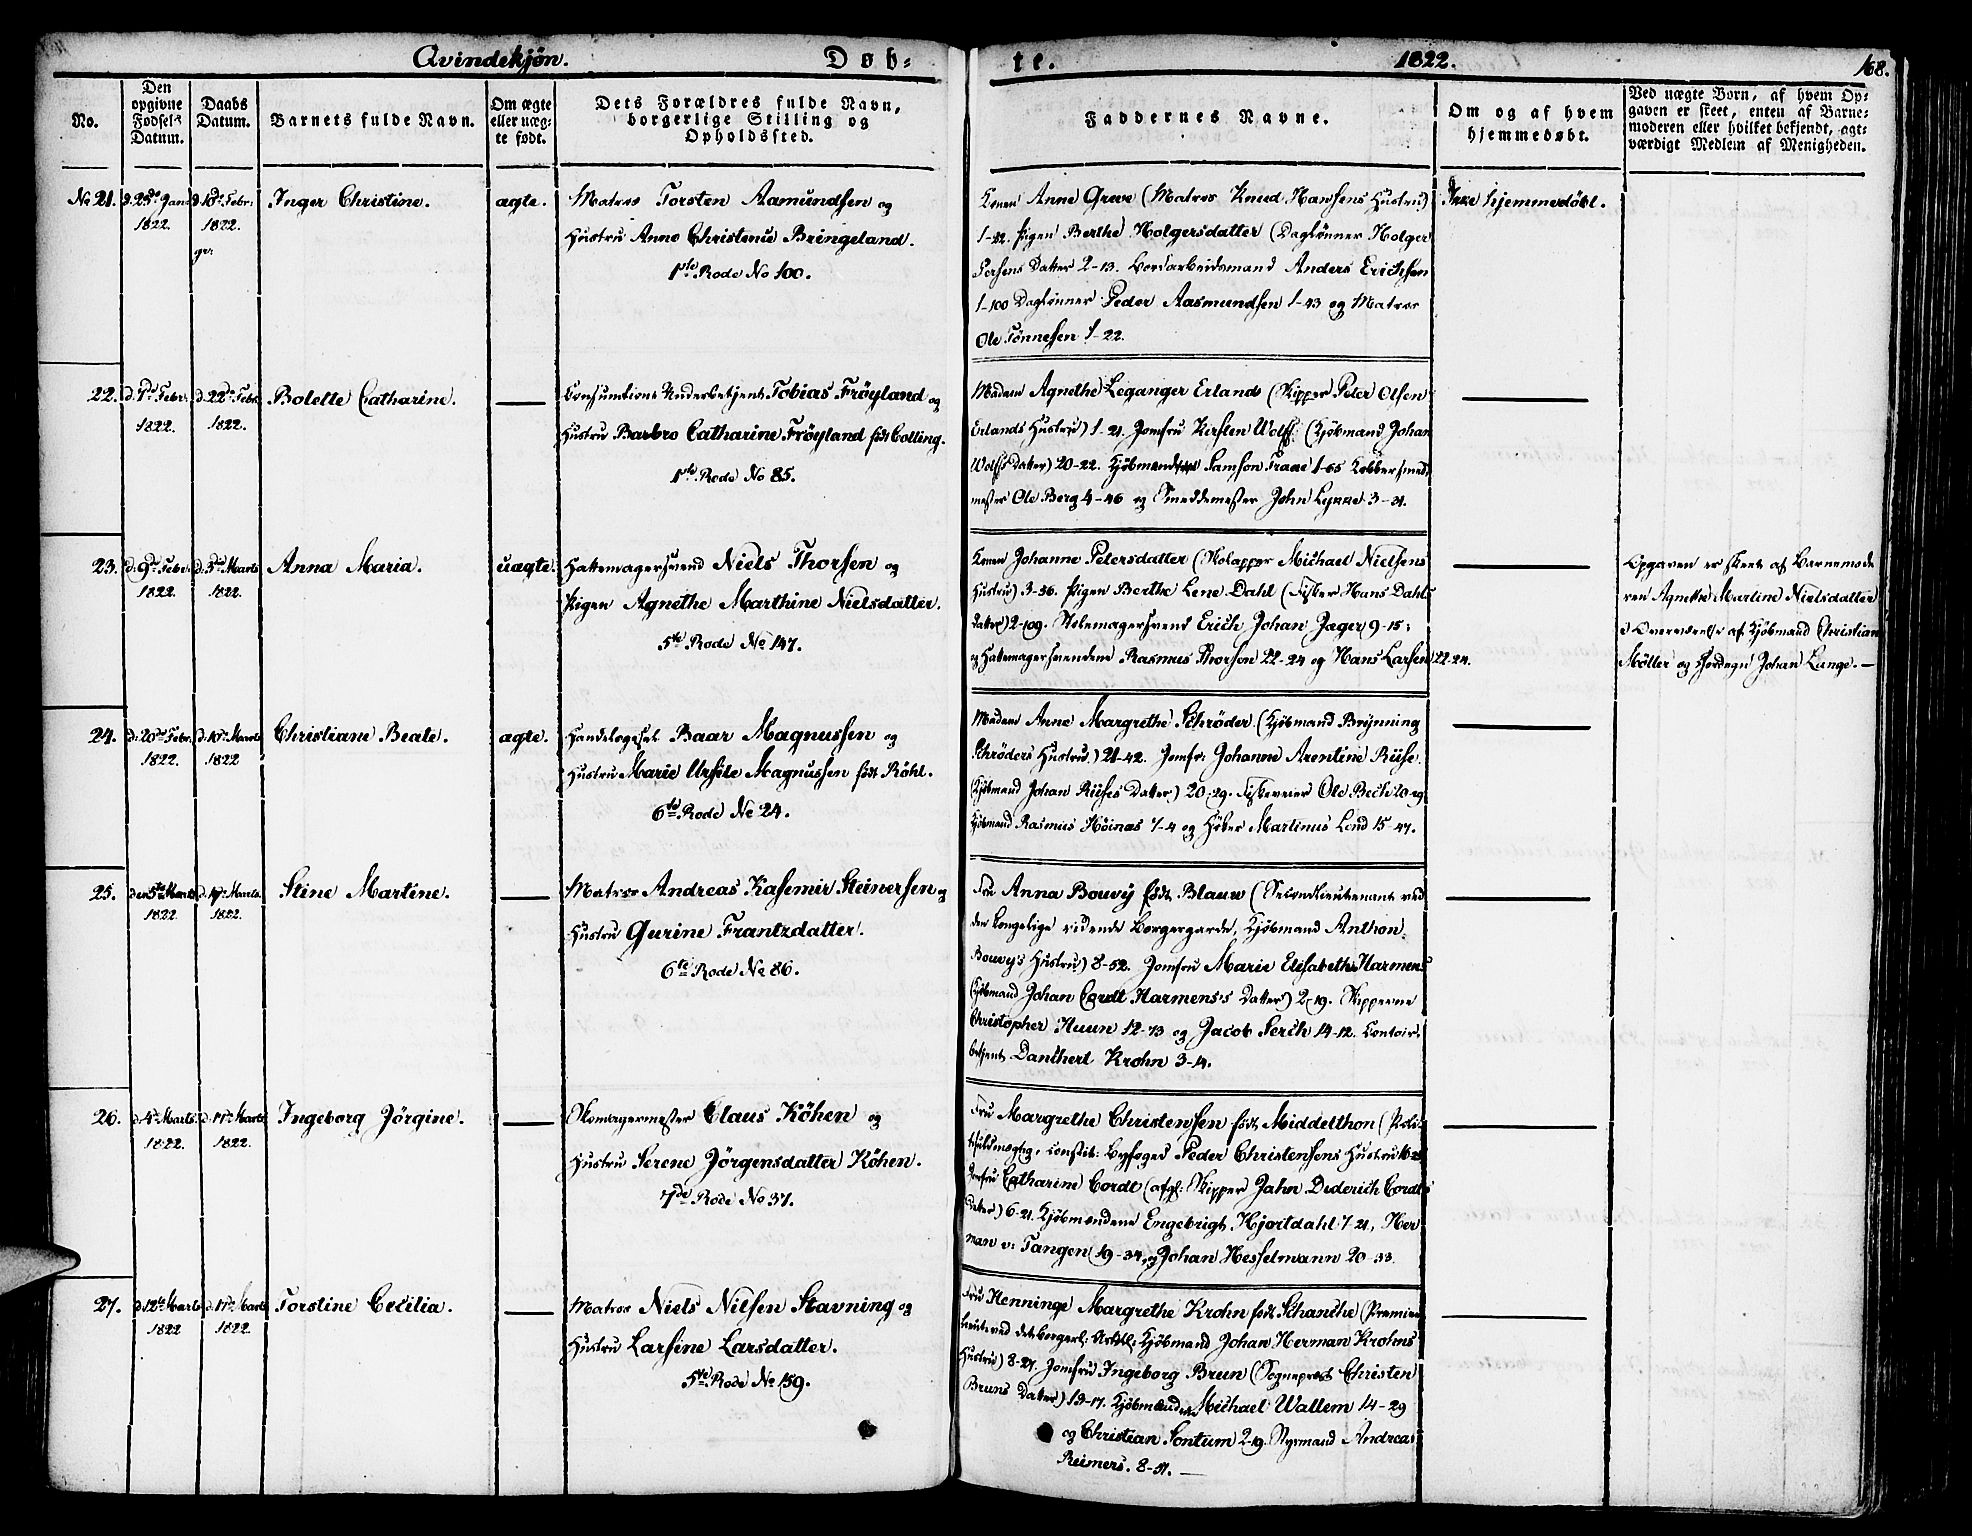 Qvindekjön.
Døb-
te.
1822.
168.
No.
Den
opgivne
Fødsels
Datum.
Daabs
Datum.
Barnets fulde Navn.
Om ægte
eller uæg-
te født.
Dets Forældres fulde Navn,
borgerlige Stilling og
Opholdssted.
Faddernes Navne.
Om og af hvem
hjemmedøbt.
Ved uægte Børn, af hvem Op-
gaven er skeet, enten af Barne-
moderen eller hvilket bekjendt, agt-
værdigt Medlem af Menigheden.
No 21.
1822.
1822.
Inger Christine.
ægte.
Matros Torsten Aamundsen og
Hustru Anne Christense Bringeland.
1ste Rode No 100.
Konen Anne Greve (Matros Knud Hansens Hustru)
1-22. Pigen Berthe Holgersdatter (Daglönner Holger
Datter 2-13. Anders Erichsen
1-100 Daglönner Peder Aasmundsen 1-43 og Matros
Ole Tönnesen 1-22.
Ikke hjemmedöbt.
22.
d. 7de Febr.
1822.
d. 22de Febr.
1822.
Bolette Catharine.
Consumtions Underbetjent Tobias Fröyland og
Hustru Barbro Catharine Fröyland födt Colling.
1ste Rode No 85.
Madam Agnethe Leganger Erland (Skipper Peter Olsen
Erlands Hustru) 1-21. Jomfru Kirsten Wolff (Kjöbmand Johan
Wolffs Datter) 20-22. Kjöbmand Samson Traae 1-65 Kobbersmed-
mester Ole Berg 4-46 og Smeddemester John Lykke 3-21.
23.
d. 9de Febr.
1822.
d. 3de Marts
1822.
Anna Maria.
uægte.
Hattemagersvend Niels Thorsen og
Pigen Agnethe Marthine Nielsdatter.
5te Rode No 147.
Konen Johanne Petersdatter (Michael Nielsens
Hustru) 3-56. Pigen Berthe Lene Dahl (Fisker Hans Dahls
Datter) 2-109. Stolemagersvend Erich Johan Jager 9-15.
og Hattemagersvendene Rasmus Thorson 22-24 og Hans Larsen 22-24.
Opgaven er skeet af Barnemode
ren Agnethe Martine Nielsdatter
i Overværelse af Kjöbmand Christian
Möller og Johan Lange.
24.
d. 20de Febr.
1822.
d. 10de Marts
1822
Christiane Beate.
ægte.
Baar Magnussen og
Hustru Marie Ursile Magnussen födt Röhl.
6te Rode No 24.
Madam Anne Margrethe Schröder (Kjöbmand Brynning
Schröders Hustru) 21-42. Jomfr: Johanne Arentine Riise
(Kjöbmand Johan Riises Datter) 20-29. Ole Bech 20-29
Kjöbmand Rasmus Höinæs 7-4 og Martinus Lend 15-47.
25.
den 5te Marts
1822.
d. 17de Marts.
1822.
Stine Martine.
Matros Andreas Kasemir Steinersen og
Hustru Gurine Frantzdatter.
6te Rode No 86.
Fru Anna Bouvy födt Blauw (Secondlieutenant ved
den Kongelige ridende Borgergarde, Kjöbmand Anthon
Bouvy's Hustru) 8-52. Jomfru Marie Elisabeth Harmens
(Kjöbmand Johan Cordt Harmens's Datter) 2-19. Skipperne
Christopher Huun 12-73 og Jacob Serch 14-12. Contoir-
betjent Danckert Krohn 3-4.
26.
d. 4de Marts.
1822.
d. 17de Marts
1822.
Ingeborg Jörgine.
Skomagermester Claus Köhen og
Hustru Serene Jörgensdatter Köhen.
7de Rode No 37.
Fru Margrethe Christensen födt Middelthon (Poli-
tifuldmægtig, constit: Byfoged Peder Christensens Hustru
Jomfru Catharine Cordt (afgl: Skipper Jahn Diderich Cordts
Datter) 6-21. Kjöbmændene Engebrigt Hjortdahl 7-21, Her
man v: Tangen 19-34, og Johan Hesselmann 20-33.
27.
d. 12te Marts
1822
d. 17de Marts
1822.
Torstine Cecilia.
Matros Niels Nilsen Stavning og
Hustru Larsine Larsdatter.
5te Rode No 159.
Fru Henninge Margrethe Krohn födt Schanche (Premier
lieut: ved det borgerl: Artill: Kjöbmand Johan Herman Krohns
Hustru) 8-27. Jomfru Ingeborg Brun (Sogneprest Christen
Bruns Datter) 13-17. Kjöbmændene Michael Wallem 14-29
og Christian Sontum 2-19. Styrmand Andreas
Reimers. 8-51.